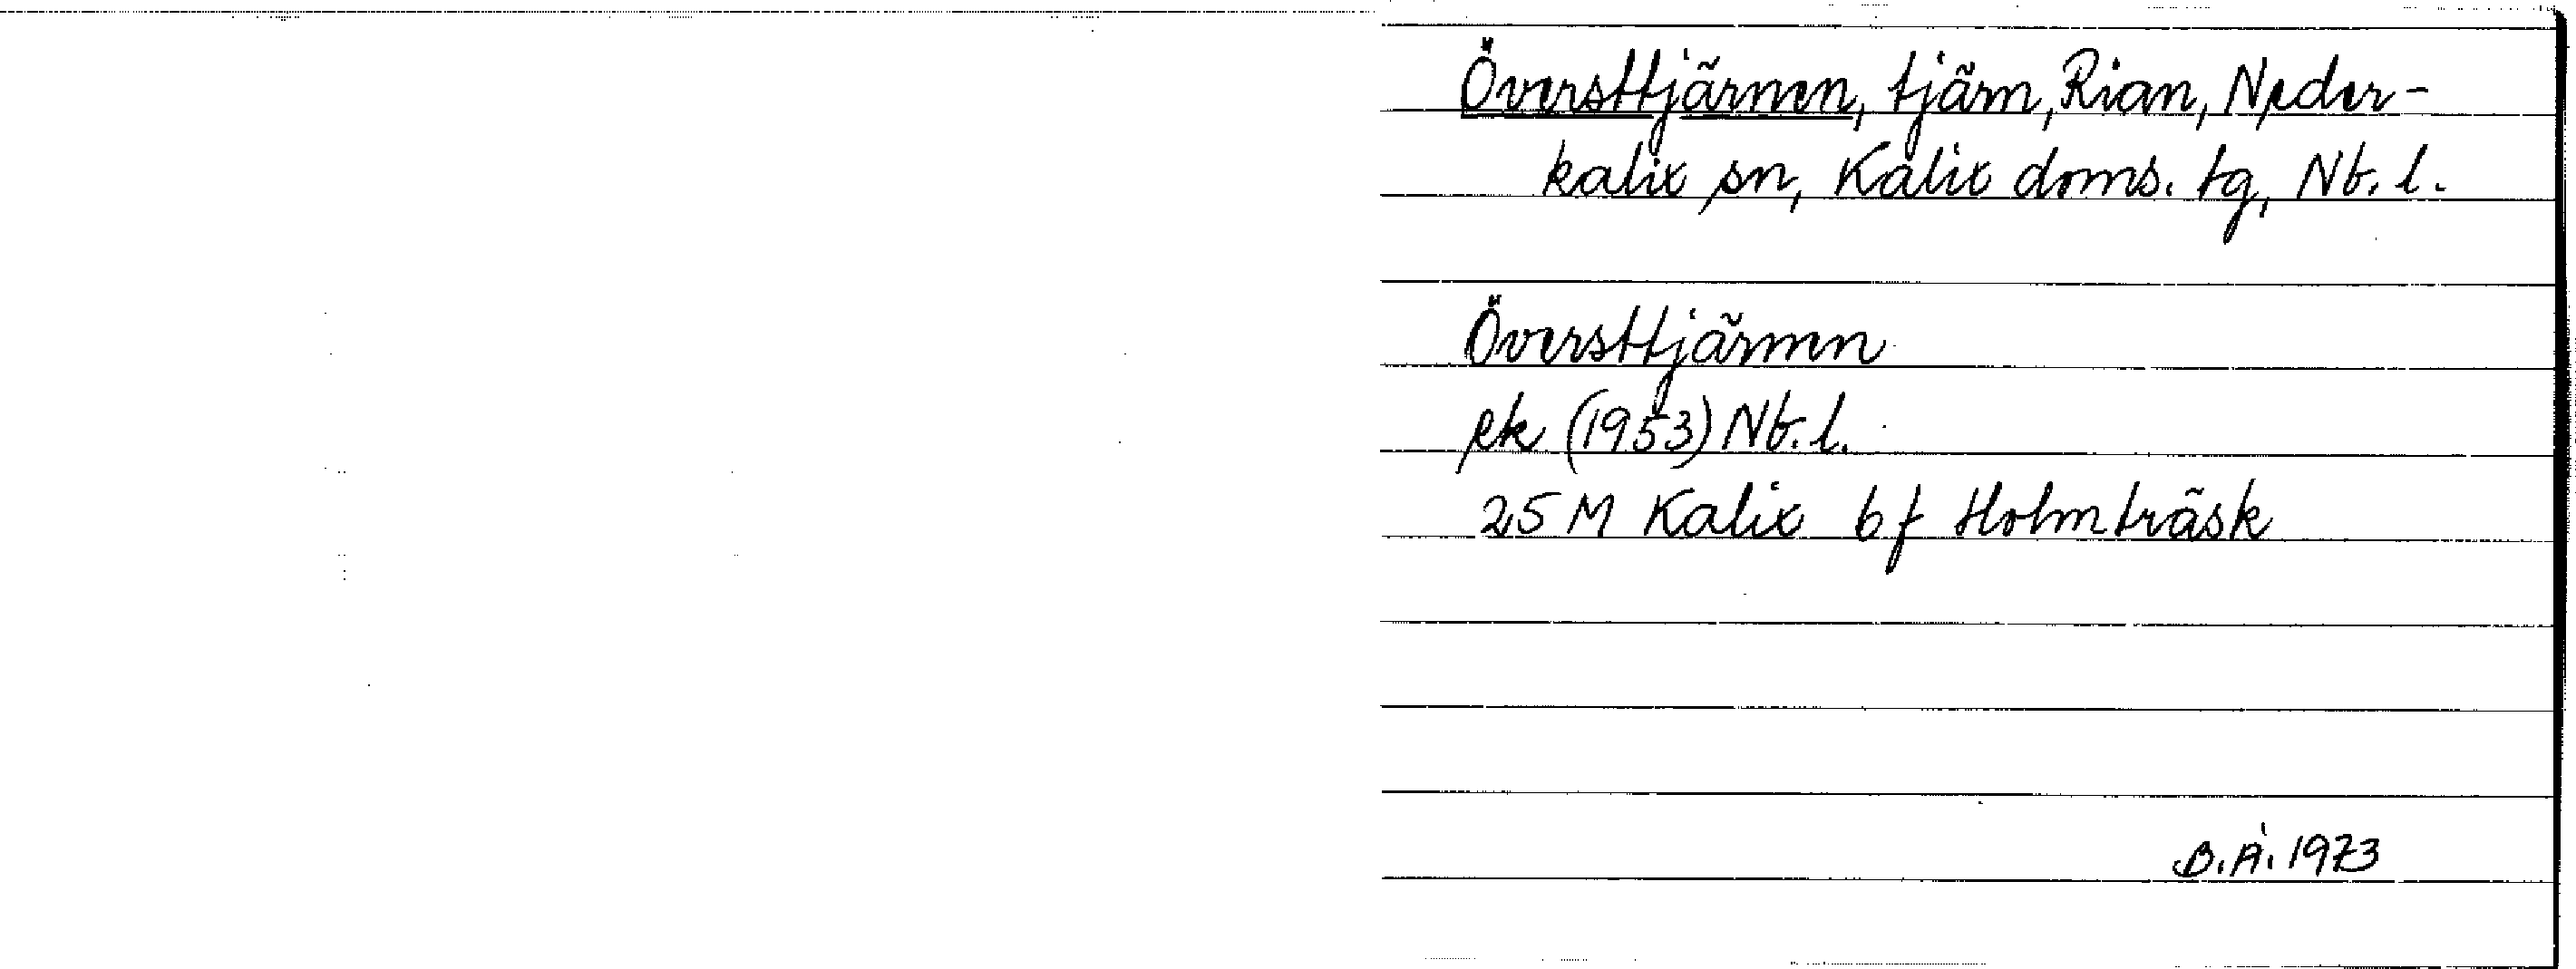 Översttjärnen, tjärn, Rian, Neder-
kalix sn, Kalix doms. tg, Nb. l.
Översttjärnen
ek (1953) Nb. l.
25 M Kalix bf Holmträsk
B. Å. 1973